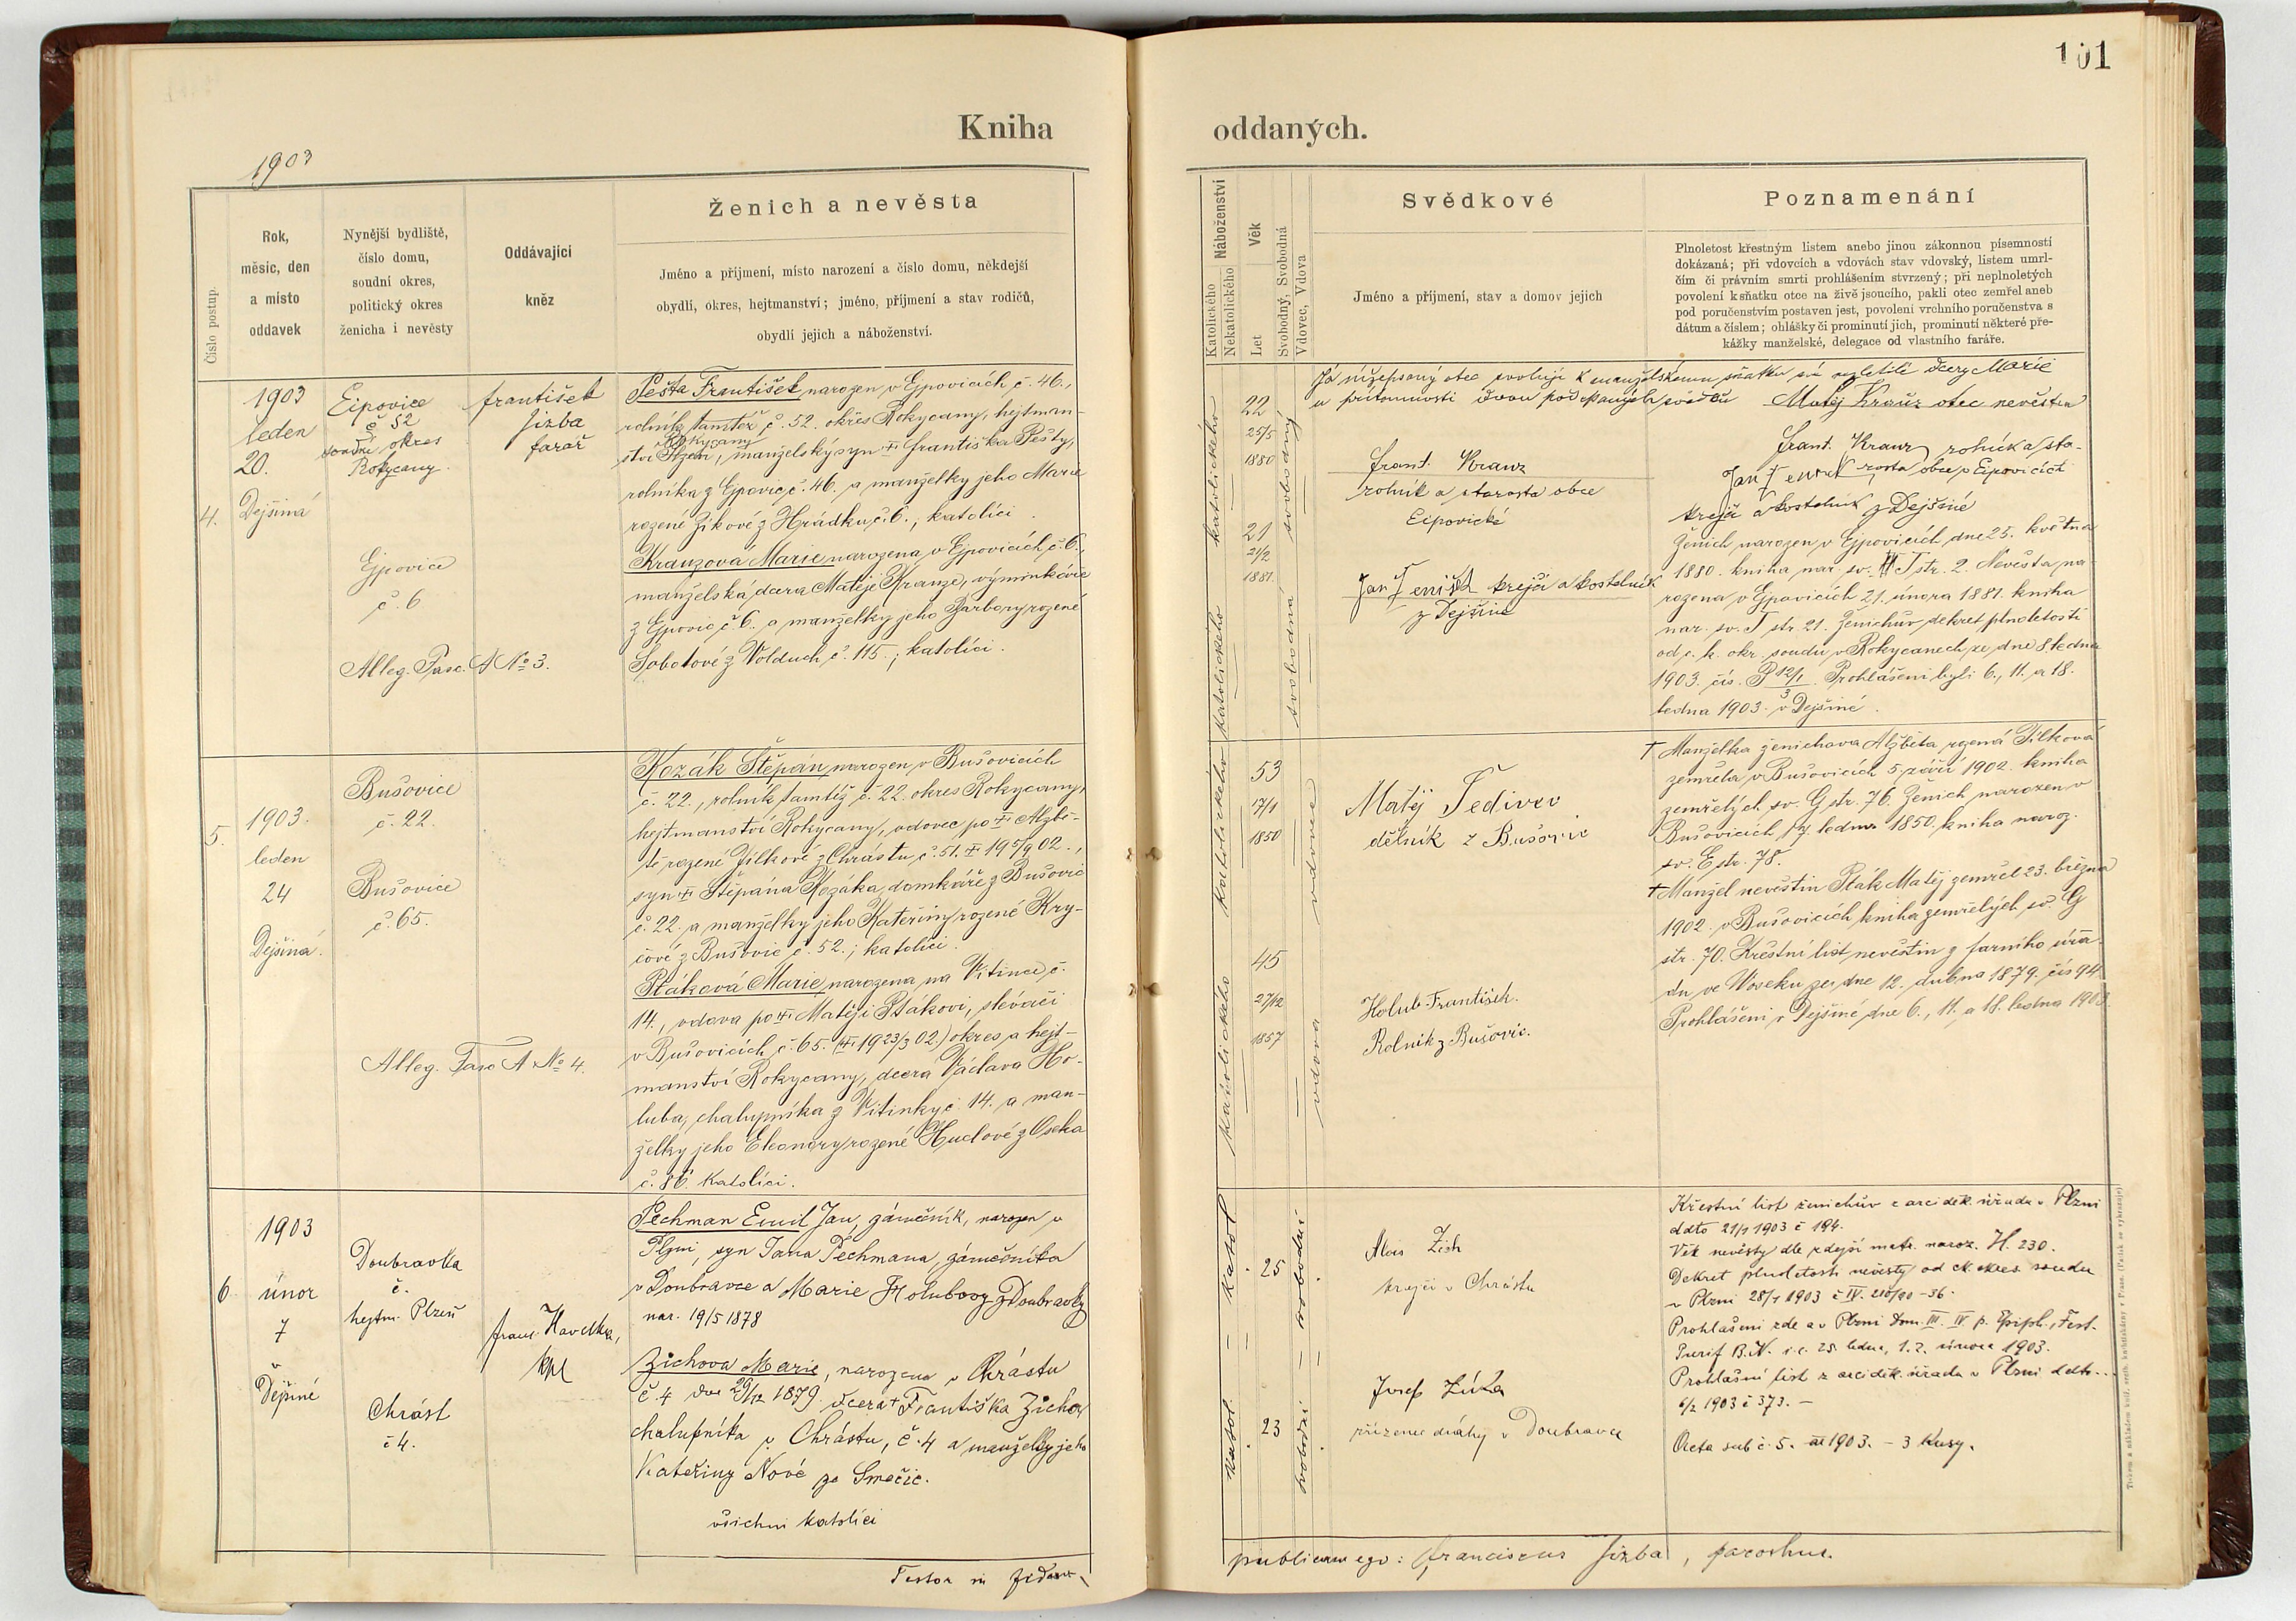 101
Kniha oddaných.
1903
Číslo postup.
Rok,
měsíc, den
a místo
oddavek
Nynější bydliště,
číslo domu,
soudní okres,
politický okres
ženicha i nevěsty
Oddávající
kněz
Ženich a nevěsta
Jméno a příjmení, místo narození a číslo domu, někdejší
obydlí, okres, hejtmanství; jméno, příjmení a stav rodičů,
obydlí jejich a náboženství.
Náboženství
Katolického
Nekatolického
Věk
Let
Svobodný, Svobodná
Vdovec, Vdova
Svědkové
Jméno a příjmení, stav a domov jejich
Poznamenání
Plnoletost křestným listem anebo jinou zákonnou písemností
dokázaná; při vdovcích a vdovách stav vdovský, listem umrl-
čím či právním smrti prohlášením stvrzený; při neplnoletých
povolení k sňatku otce na živě jsoucího, pakli otec zemřel aneb
pod poručenstvím postaven jest, povolení vrchního poručenstva s
dátum a číslem; ohlášky či prominutí jich, prominutí některé pře-
kážky manželské, delegace od vlastního faráře.
4.
1903
leden
20.
Dejšina
Eipovice
č 52
soudní okres
Rokycany.
Ejpovice
č. 6
Alleg. Fasc. A No 3.
František
Jizba
farář
Pešta František narozen v Ejpovicích č. 46.,
rolník tamtéž č. 52. okres Rokycany, hejtman-
Rokycany
ství Plzeň, manželský syn Františka Pešty,
rolníka z Ejpovic č. 46. a manželky jeho Marie
rozené Zíkové z Hrádku č. 6.; katolíci.
Krauzová Marie narozena v Ejpovicích č. 6.,
manželská dcera Matěje Krauze, výminkáře
z Ejpovic č. 6. a manželky jeho Barbory rozené
Sobotové z Volduch č. 115.; katolíci.
katolického
katolického
22
25/5
1880
21
21/2
1881.
svobodný
svobodná
Já nížepsaný otec svoluji k manželskému sňatku své nezletilé dcery Marie
u přítomnosti dvou podepsaných svědků Matěj Krauz otec nevěsty
Frant. Krauz rolník a sta-
rosta obce v Eipovicích
Jan Jeništ
krejčí a kostelník z Dejšiné
Frant. Krauz
rolník a starosta obce
Eipovické
Jan Jeništ krejčí a kostelník
z Dejšiné
Ženich narozen v Ejpovicích dne 25. května
1880. kniha nar. sv. I str. 2. Nevěsta na-
rozena v Ejpovicích 21. února 1881. kniha
nar. sv. I str. 21. Ženichův dekret plnoletosti
od c. k. okr. soudu v Rokycanech ze dne 8. ledna
1903. čís. P 12/1 3. Prohlášeni byli 6., 11. a 18.
ledna 1903. v Dejšiné.
5.
1903.
leden
24
Dejšina.
Bušovice
č. 22.
Bušovice
č. 65.
Alleg. Fasc A No 4.
Kozák Štěpán, narozen v Bušovicích
č. 22., rolník tamtéž č. 22. okres Rokycany,
hejtmanství Rokycany, vdovec po Alžbě-
tě rozené Jílkové z Chrástu č. 51. 19 5/9 02.,
syn Štěpána Kozáka, domkáře z Bušovic
č. 22. a manželky jeho Kateřiny rozené Kry-
čové z Bušovic č. 52.; katolíci.
Ptáková Marie, narozena na Vitince č.
14., vdova po Matěji Ptákovi, slévači
v Bušovicích č. 65. (19 23/3 02.) okres a hejt-
manství Rokycany, dcera Václava Ho-
luba, chalupníka z Vitinky č. 14. a man-
želky jeho Eleonory rozené Hudové z Oseka
č. 86. katolíci.
katolického
katolického
53
17/1
1850
45
27/12
1857
vdovec
vdova
Matěj Šedivec
dělník z Bušovic
Holub František.
Rolník z Bušovic.
† Manželka ženichova Alžběta rozená Jílková
zemřela v Bušovicích 5. září 1902. kniha
zemřelých sv. G str. 76. Ženich narozen v
Bušovicích 17. ledna 1850. kniha naroz.
sv. E str. 78.
† Manžel nevěstin Pták Matěj zemřel 23. března
1902. v Bušovicích kniha zemřelých sv. G
str. 70. Křestní list nevěstin z farního úřa-
du ve Voseku ze dne 12. dubna 1879. čís 94.
Prohlášeni v Dejšiné dne 6., 11. a 18. ledna 1903.
6.
1903
únor
7
v
Dejšiné
Doubravka
č.
hejtm. Plzeň
Chrást
č 4.
Franc. Havelka,
kpl
Pechman Emil Jan, zámečník, narozen v
Plzni, syn Jana Pechmana, zámečníka
v Doubravce a Marie Holubovy z Doubravky
nar. 19/5 1878
Zichova Marie, narozena v Chrástu
č. 4 dne 29/12 1879 dcera † Františka Zicha,
chalupníka v Chrástu, č. 4 a manželky jeho
Kateřiny Nové ze Smečic.
všichni katolíci
katol
katol.
25
23
svobodní
svobodní
Alois Zich
krejčí v Chrástu
Josef Zíka
zřízenec dráhy v Doubravce
Křestní list ženichův z arciděk. úřadu v Plzni
ddto 21/1 1903 č 194.
Věk nevěsty dle zdejší matr. naroz. H. 230.
Dekret plnoletosti nevěsty od ck. okres. soudu
v Plzni 28/1 1903 č IV. 210/90-36.
Prohlášeni zde a v Plzni Dom. III. IV p. Epiph., Fest.
Purif B. V. i. e. 25 ledna, 1. 2. února 1903.
Prohlašní list z arciděk. úřadu v Plzni ddto...
6/2 1903 č 373. -
Acta sub č. 5. 1903. - 3 kusy.
Testor in fidem,
publicum ego: Franciscus Jizba, parochus.